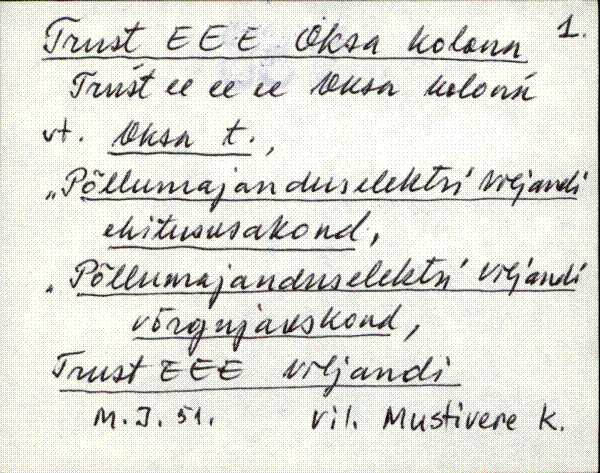 Trust EEE Oksa kolonn 1.
Trust ee ee ee Oksa kolonn
vt. Oksa t.,
"Põllumajanduselektri Viljandi
ehitusosakond,
"Põllumajanduselektri Viljandi
võrgujaoskond,
Trust EEE Viljandi
M.J. 51. Vil. Mustivere k.